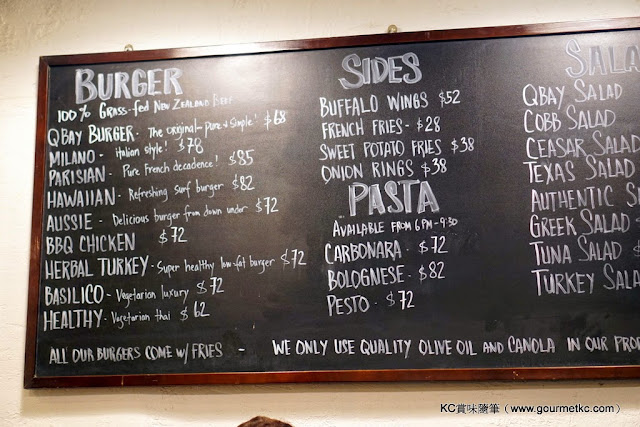 BURGER
100% GRASS-FED NEW ZEALAND BEEF
QBAY BURGER - The original - Pure & Simple! $68
MILANO - italian style! $78
PARISIAN - Pure French decadence! $85
HAWAIIAN - Refreshing Surf burger $82
AUSSIE - Delicious burger from down under $72
BBQ CHICKEN $72
HERBAL TURKEY - Super healthy low-fat burger $72
BASILICO - Vegetarian luxury $72
HEALTHY - Vegetarian thai $62
SIDES
BUFFALO WINGS $52
FRENCH FRIES - $28
SWEET POTATO FRIES $38
ONION RINGS $38
PASTA
AVAILABLE FROM 6PM - 9:30
CARBONARA - $72
BOLOGNESE - $82
PESTO - $72
SALA
QBAY SALAD
COBB SALAD
CEASAR SALAD
TEXAS SALAD
AUTHENTIC
GREEK SALAD
TUNA SALAD
TURKEY SALA
ALL OUR BURGERS COME W/ FRIES - WE ONLY USE QUALITY OLIVE OIL AND CANOLA IN OUR PRO
KC賞味隨筆（www.gourmetkc.com）